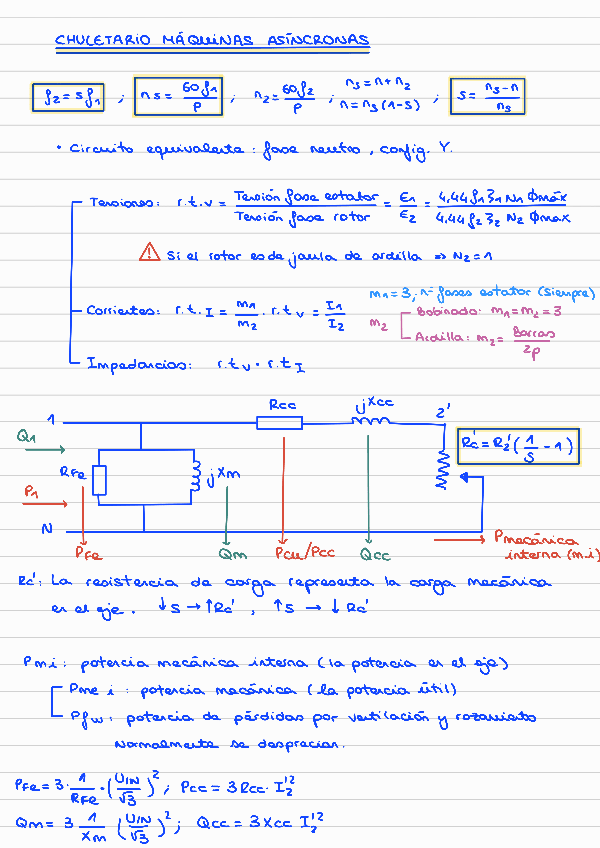 CHULETARIO MÁQUINAS ASÍNCRONAS
f₂ = s f₁ ; ns = 60f₁/P ; n₂ = 60f₂/P ; ns = n + n₂ ; s = ns - n/ns
n = ns (1-s)
• Circuito equivalente : fase neutro, config. Y.
Tensiones: r.t.v = Tensión fase estator/Tensión fase rotor = E₁/E₂ = 4,44 f₁ ξ₁ N₁ Φmáx/4,44 f₂ ξ₂ N₂ Φmax
⚠ Si el rotor es de jaula de ardilla ⇒ N₂ = 1
m₁ = 3, nº fases estator (siempre)
Corrientes: r.t.I = m₁/m₂ · r.t.v = I₁/I₂
m₂ Bobinado: m₁ = m₂ = 3
Ardilla: m₂ = Barras/2p
Impedancias: r.t.v · r.t.I
Rcc jXcc
1 2'
Q₁ Rc' = R₂' (1/s - 1)
RFe jXm
P₁
N Pmecánica
PFe Qm Pcu/Pcc Qcc interna (m.i)
Rc': La resistencia de carga representa la carga mecánica
en el eje. ↓s → ↑Rc' , ↑s → ↓Rc'
Pmi : potencia mecánica interna (la potencia en el eje)
Pme i : potencia mecánica (la potencia útil)
Pfw : potencia de pérdidas por ventilación y rozamiento
Normalmente se desprecian.
PFe = 3 · 1/RFe · (U1N/√3)² ; Pcc = 3 Rcc · I₂'²
Qm = 3 1/Xm (U1N/√3)² ; Qcc = 3 Xcc I₂'²